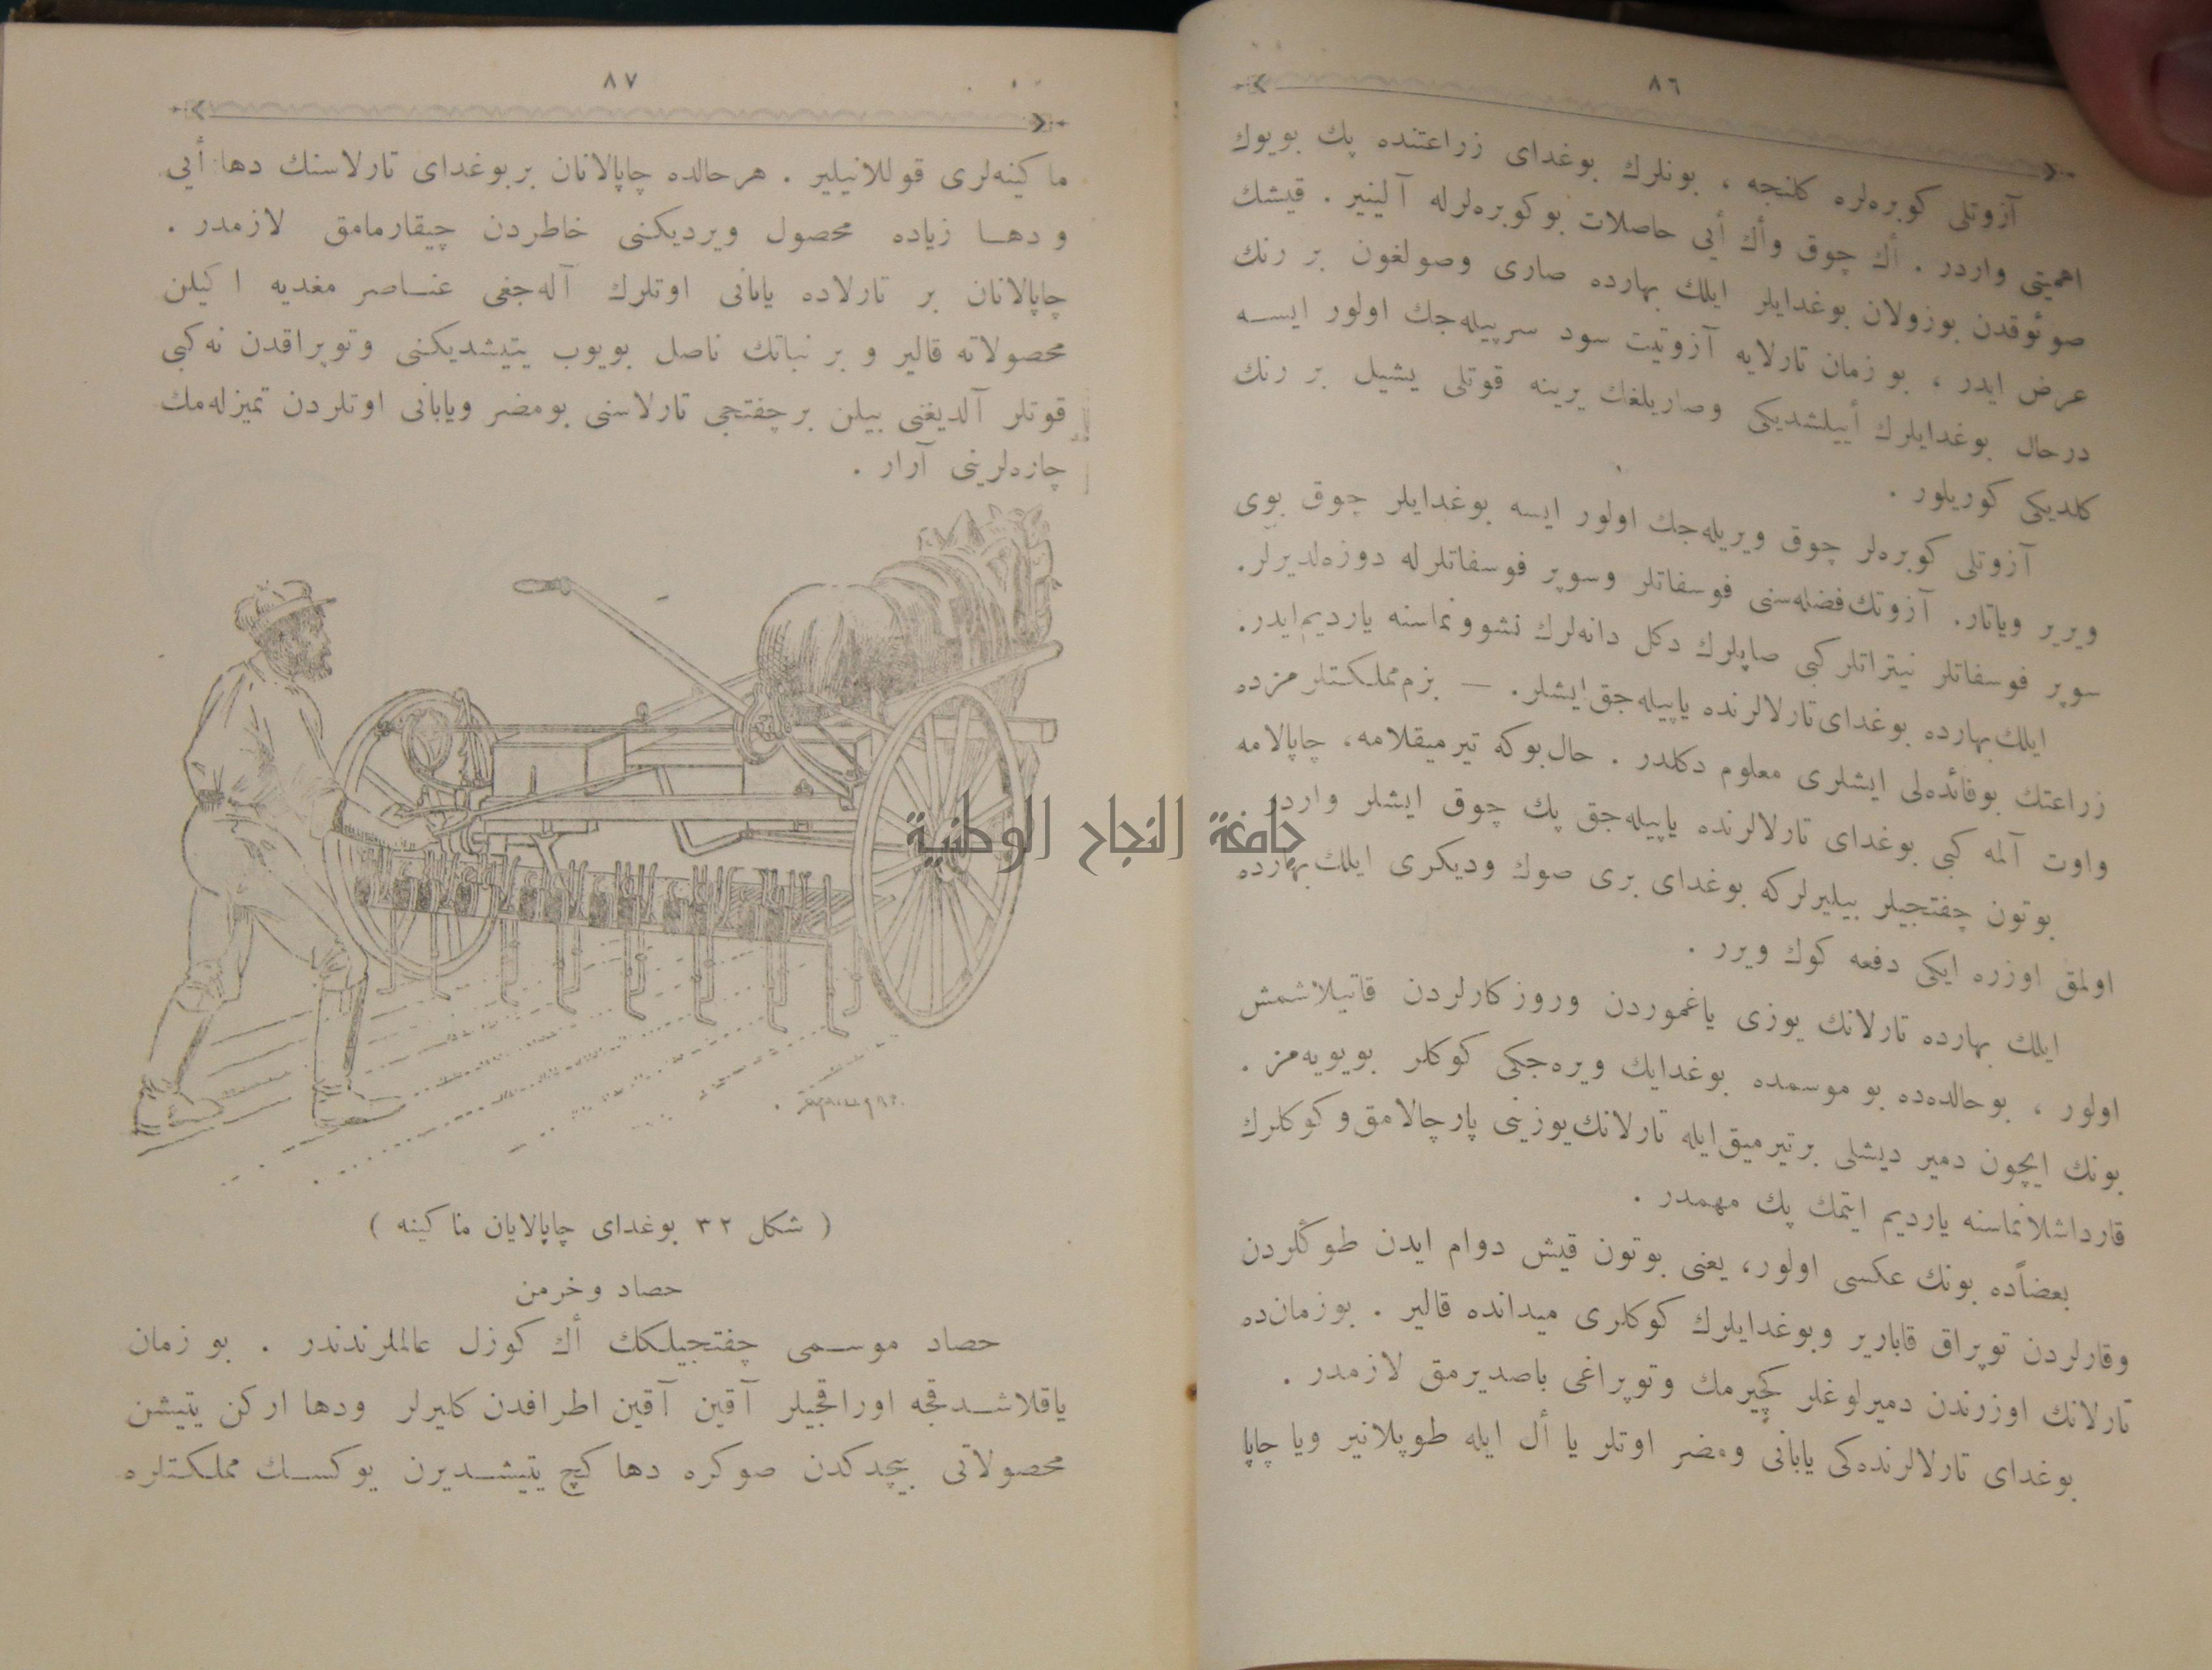 ٨٦
آزوتلى كوبره‌لره كلنجه ، بونلرك بوغداى زراعتنده پك بويوك
اهميتى واردر . أك چوق وأك أيى حاصلات بوكوبره‌لرله آلينير . قيشك
صوئوقدن بوزولان بوغدايلر ايلك بهارده صارى وصولغون بر رنك
عرض ايدر ، بو زمان تارلايه آزوتيت سود سرپيله‌جك اولور ايسه
درحال بوغدايلرك أييلشديكى وصاريلغك يرينه قوتلى يشيل بر رنك
كلديكى كوريلور .
آزوتلى كوبره‌لر چوق ويريله‌جك اولور ايسه بوغدايلر چوق بوى
ويرير وياتار. آزوتك فضله‌سنى فوسفاتلر وسوپر فوسفاتلرله دوزه‌لديرلر.
سوپر فوسفاتلر نيتراتلر كبى صاپلرك دكل دانه‌لرك نشوونماسنه يارديم ايدر.
ايلك بهارده بوغداى تارلالرنده ياپيله‌جق ايشلر. — بزم مملكتلرمزده
زراعتك بوفائده‌لى ايشلرى معلوم دكلدر . حال بوكه تيرميقلامه، چاپالامه
واوت آلمه كبى بوغداى تارلالرنده ياپيله‌جق پك چوق ايشلر واردر.
بوتون چفتجيلر بيليرلركه بوغداى برى صوك وديكرى ايلك بهارده
اولمق اوزره ايكى دفعه كوك ويرر .
ايلك بهارده تارلانك يوزى ياغموردن وروزكارلردن قاتيلاشمش
اولور ، بوحالده‌ده بو موسمده بوغدايك ويره‌جكى كوكلر بويويه‌مز .
بونك ايچون دمير ديشلى برتيرميق ايله تارلانك يوزينى پارچالامق و كوكلرك
قارداشلانماسنه يارديم ايتمك پك مهمدر .
بعضاًده بونك عكسى اولور، يعنى بوتون قيش دوام ايدن طوڭلردن
وقارلردن توپراق قابارير وبوغدايلرك كوكلرى ميدانده قالير . بوزمان‌ده
تارلانك اوزرندن دميرلوغلر كچيرمك وتوپراغى باصديرمق لازمدر .
بوغداى تارلالرنده‌كى يابانى ومضر اوتلر يا أل ايله طوپلانير ويا چاپا
٨٧
ماكينه‌لرى قوللانيلير . هرحالده چاپالانان بربوغداى تارلاسنك دها أيى
ودها زياده محصول ويرديكنى خاطردن چيقارمامق لازمدر .
چاپالانان بر تارلاده يابانى اوتلرك آله‌جغى عناصر مغديه اكيلن
محصولاته قالير و بر نباتك ناصل بويوب يتيشديكنى وتوپراقدن نه‌كبى
قوتلر آلديغنى بيلن برچفتجى تارلاسنى بومضر ويابانى اوتلردن تميزله‌مك
چاره‌لرينى آرار .
( شكل ٣٢ بوغداى چاپالايان ماكينه )
حصاد وخرمن
حصاد موسمى چفتجيلكك أك كوزل عالملرندندر . بو زمان
ياقلاشدقجه اوراقجيلر آقين آقين اطرافدن كليرلر ودها اركن يتيشن
محصولاتى بيچدكدن صوكره دها كچ يتيشديرن يوكسك مملكتلره
جامعة النجاح الوطنية